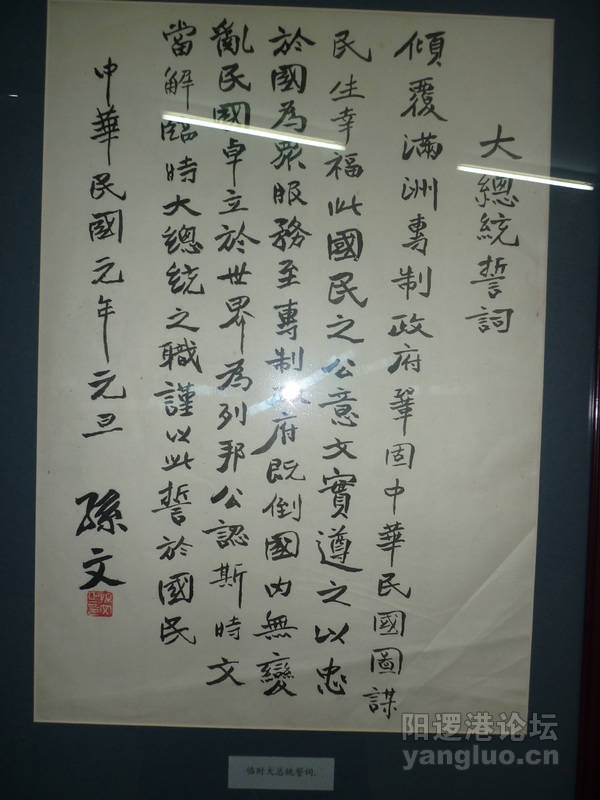 大總統誓詞
傾覆滿洲專制政府鞏固中華民國圖謀
民生幸福此國民之公意文實遵之以忠
於國為眾服務至專制政府既倒國內無變
亂民國卓立於世界為列邦公認斯時文
當解臨時大總統之職謹以此誓於國民
中華民國元年元旦
孫文
临时大总统誓词.
阳逻港论坛
yangluo.cn